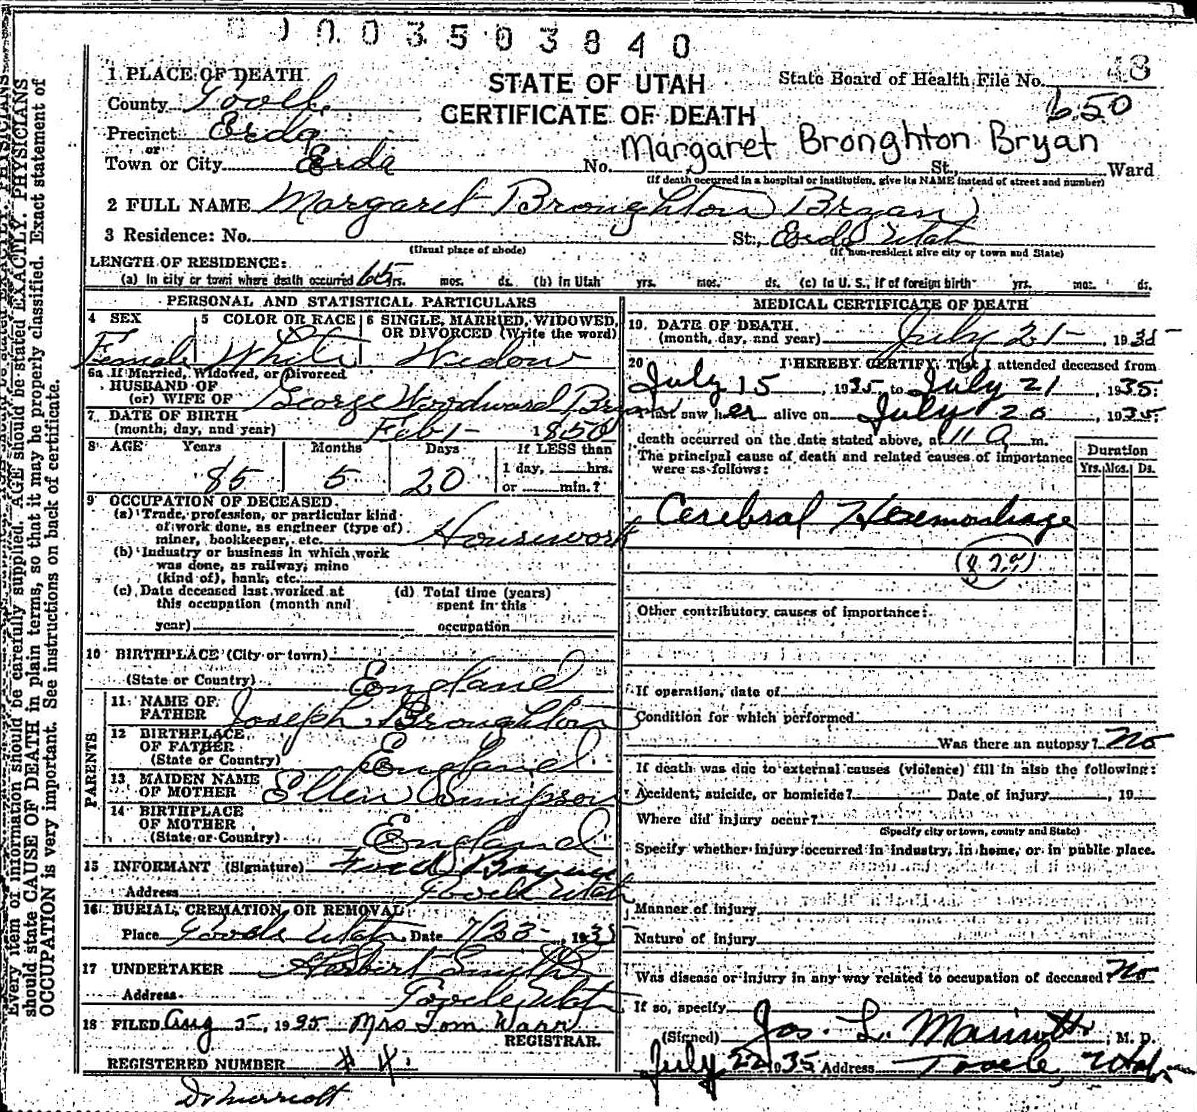 0 1 0 0 3 5 0 3 8 4 0
STATE OF UTAH
CERTIFICATE OF DEATH
State Board of Health File No. 48
650
1 PLACE OF DEATH
County Tooele
Precinct Erda
or
Town or City Erda No. Margaret Bronghton Bryan St., Ward
(If death occurred in a hospital or institution, give its NAME instead of street and number)
2 FULL NAME Margaret Broughton Bryan
3 Residence: No. St., Erda Utah
(Usual place of abode) (If non-resident give city or town and State)
LENGTH OF RESIDENCE:
(a) In city or town where death occurred 65 yrs. mos. ds. (b) In Utah yrs. mos. ds. (c) In U. S., if of foreign birth yrs. mos. ds.
PERSONAL AND STATISTICAL PARTICULARS
4 SEX 5 COLOR OR RACE 6 SINGLE, MARRIED, WIDOWED, OR DIVORCED (Write the word)
Female White Widow
6a If Married, Widowed, or Divorced
HUSBAND OF
(or) WIFE OF George Woodward Bryan
7 DATE OF BIRTH
(month, day, and year) Feb 1 - 1850
8 AGE Years Months Days If LESS than
1 day, hrs.
85 5 20 or min.?
9 OCCUPATION OF DECEASED
(a) Trade, profession, or particular kind
of work done, as engineer (type of)
miner, bookkeeper, etc. Housework
(b) Industry or business in which work
was done, as railway, mine
(kind of), bank, etc.
(c) Date deceased last worked at
this occupation (month and
year)
(d) Total time (years)
spent in this
occupation
10 BIRTHPLACE (City or town)
(State or Country) England
PARENTS
11 NAME OF
FATHER Joseph Broughton
12 BIRTHPLACE
OF FATHER
(State or Country) England
13 MAIDEN NAME
OF MOTHER Ellen Simpson
14 BIRTHPLACE
OF MOTHER
(State or Country) England
15 INFORMANT (Signature) Fred Bryan
Address Tooele Utah
16 BURIAL, CREMATION, OR REMOVAL
Place Tooele Utah Date 7/23- 1935
17 UNDERTAKER Herbert Smith
Address Tooele, Utah
18 FILED Aug 5, 1935 Mrs Tom Warr
REGISTRAR.
REGISTERED NUMBER # 4
Dr Marriott
MEDICAL CERTIFICATE OF DEATH
19. DATE OF DEATH.
(month, day, and year) July 21 - 1935
20 I HEREBY CERTIFY, That I attended deceased from
July 15, 1935, to July 21, 1935.
I last saw her alive on July 20, 1935.
death occurred on the date stated above, at 11 A m.
The principal cause of death and related causes of importance
were as follows:
Duration
Yrs. Mos. Ds.
Cerebral Hemorrhage
Other contributory causes of importance:
If operation, date of
Condition for which performed
Was there an autopsy? No
If death was due to external causes (violence) fill in also the following:
Accident, suicide, or homicide? Date of injury , 19
Where did injury occur?
(Specify city or town, county and State)
Specify whether injury occurred in industry, in home, or in public place.
Manner of injury
Nature of injury
Was disease or injury in any way related to occupation of deceased? No
If so, specify
(Signed) Jos. L. Marriott, M. D.
July 22 1935 Address Tooele, Utah
should state CAUSE OF DEATH in plain terms, so that it may be properly classified. Exact statement of
OCCUPATION is very important. See instructions on back of certificate.
Every item of information should be carefully supplied. AGE should be stated EXACTLY. PHYSICIANS